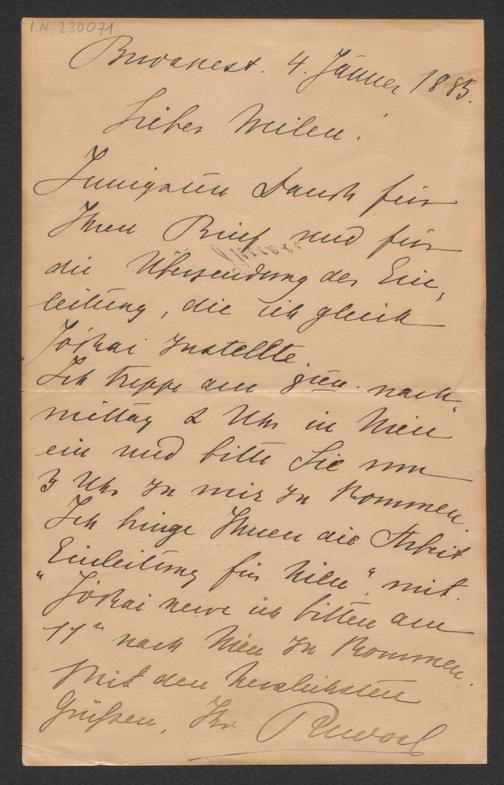 I.N. 230071
Budapest. 4. Jänner 1885.
Lieber Weilen!
Innigsten Dank für
Ihren Brief und für
die Übersendung der Ein-
leitung, die ich gleich
Jókai zustellte.
Ich treffe am 9ten nach-
mittag 2 Uhr in Wien
ein und bitte Sie um
3 Uhr zu mir zu kommen.
Ich bringe Ihnen die Arbeit
"Einleitung für Wien", mit.
Jókai werde ich bitten am
11ten nach Wien zu kommen.
Mit den herzlichsten
Grüßen, Ihr Rudolf